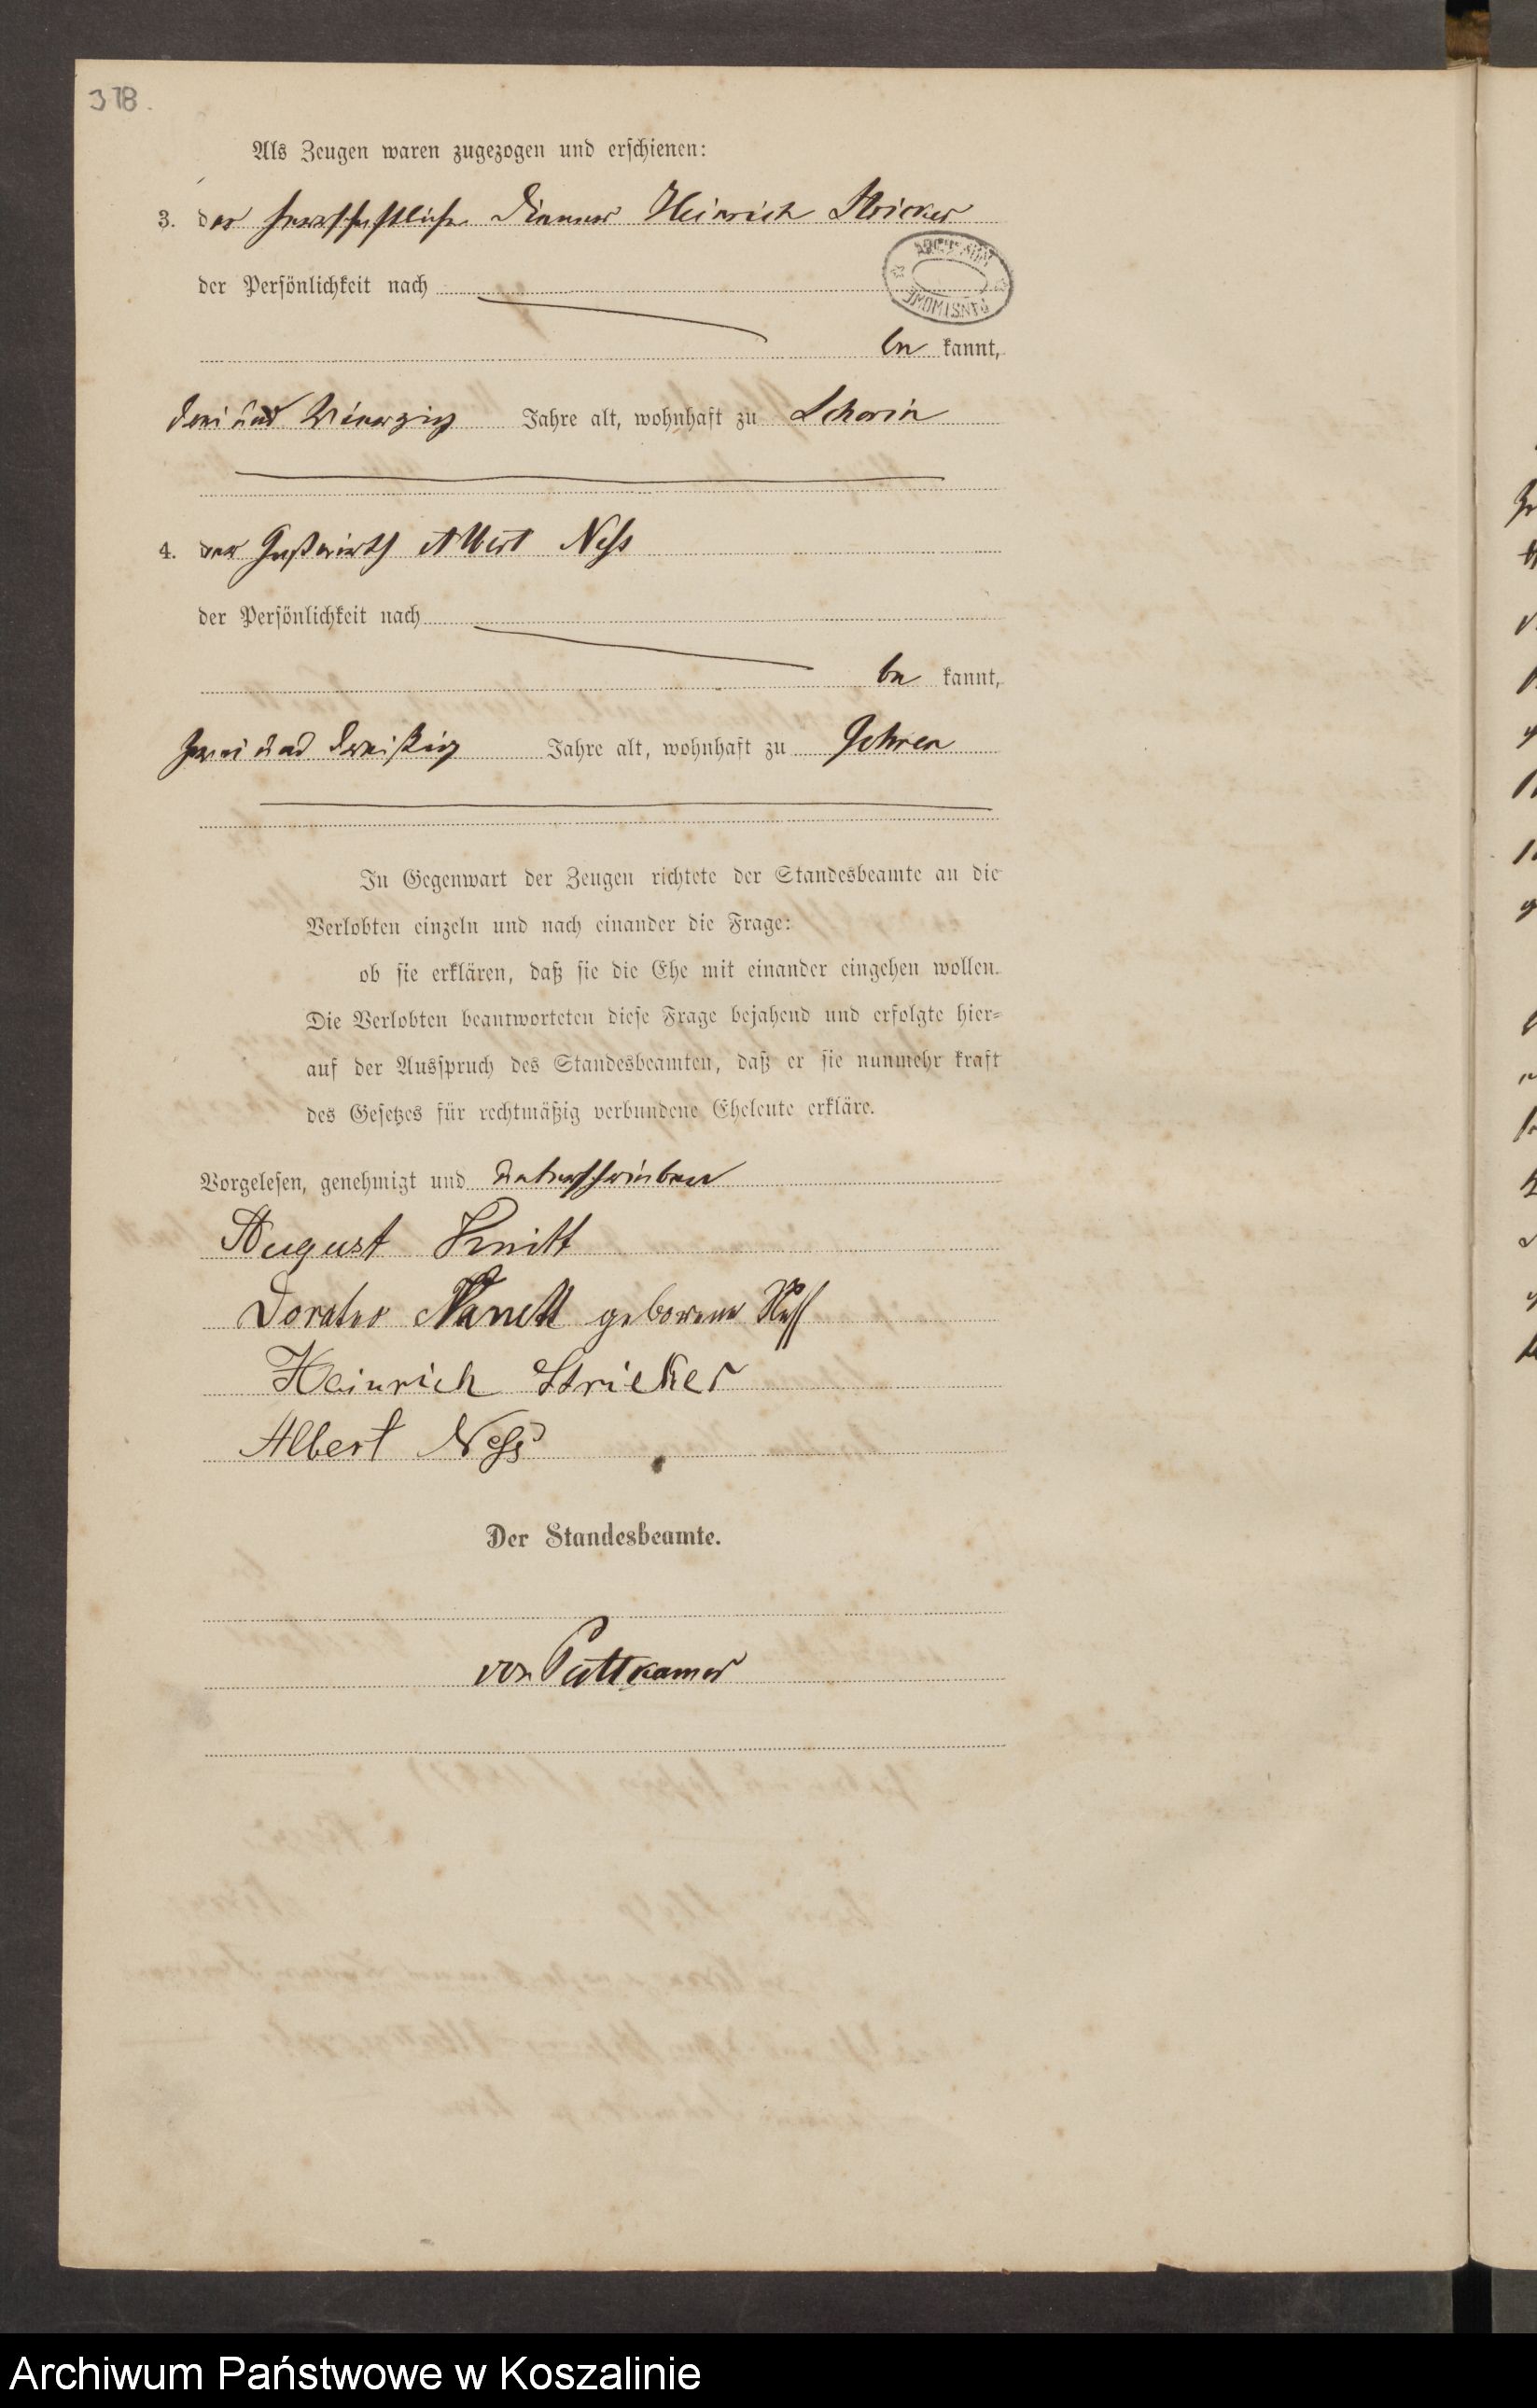 378.
Als Zeugen waren zugezogen und erschienen:
3. der herrschaftliche Diener Heinrich Stricker
der Persönlichkeit nach
be kannt,
drei und vierzig Jahre alt, wohnhaft zu Schorin
4. der Gastwirth Albert Ness
der Persönlichkeit nach
be kannt,
zwei und dreißig Jahre alt, wohnhaft zu Gohren
In Gegenwart der Zeugen richtete der Standesbeamte an die
Verlobten einzeln und nach einander die Frage:
ob sie erklären, daß sie die Ehe mit einander eingehen wollen.
Die Verlobten beantworteten diese Frage bejahend und erfolgte hier-
auf der Ausspruch des Standesbeamten, daß er sie nunmehr kraft
des Gesetzes für rechtmäßig verbundene Eheleute erkläre.
Vorgelesen, genehmigt und unterschrieben
August
geborene Ness
Heinrich Stricker
Albert Ness
Der Standesbeamte.
von Puttkamer
Archiwum Państwowe w Koszalinie